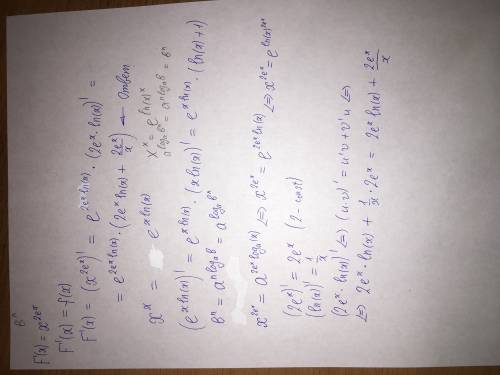 bⁿ
F(x) = x^{2eˣ}
F'(x) = f(x)
F'(x) = (x^{2eˣ})' = e^{2eˣ ln(x)} · (2eˣ · ln(x))' =
= e^{2eˣ ln(x)} · (2eˣ ln(x) + 2eˣ/x) ← Ответ
xˣ = e^{x ln(x)}
xˣ = e^{ln(x)ˣ}
a^{log_a bⁿ} = a^{n log_a b} = bⁿ
(e^{x ln(x)})' = e^{x ln(x)} · (x ln(x))' = e^{x ln(x)} · (ln(x) + 1)
bⁿ = a^{n log_a b} = a^{log_a bⁿ}
x^{2eˣ} = a^{2eˣ log_a(x)} <=> x^{2eˣ} = e^{2eˣ ln(x)} <=> x^{2eˣ} = e^{ln(x)^{2eˣ}}
(2eˣ)' = 2eˣ (2 - const)
(ln(x))' = 1/x
(2eˣ · ln(x))' <=> (u·v)' = u'v + v'u <=>
<=> 2eˣ · ln(x) + 1/x · 2eˣ = 2eˣ ln(x) + 2eˣ/x